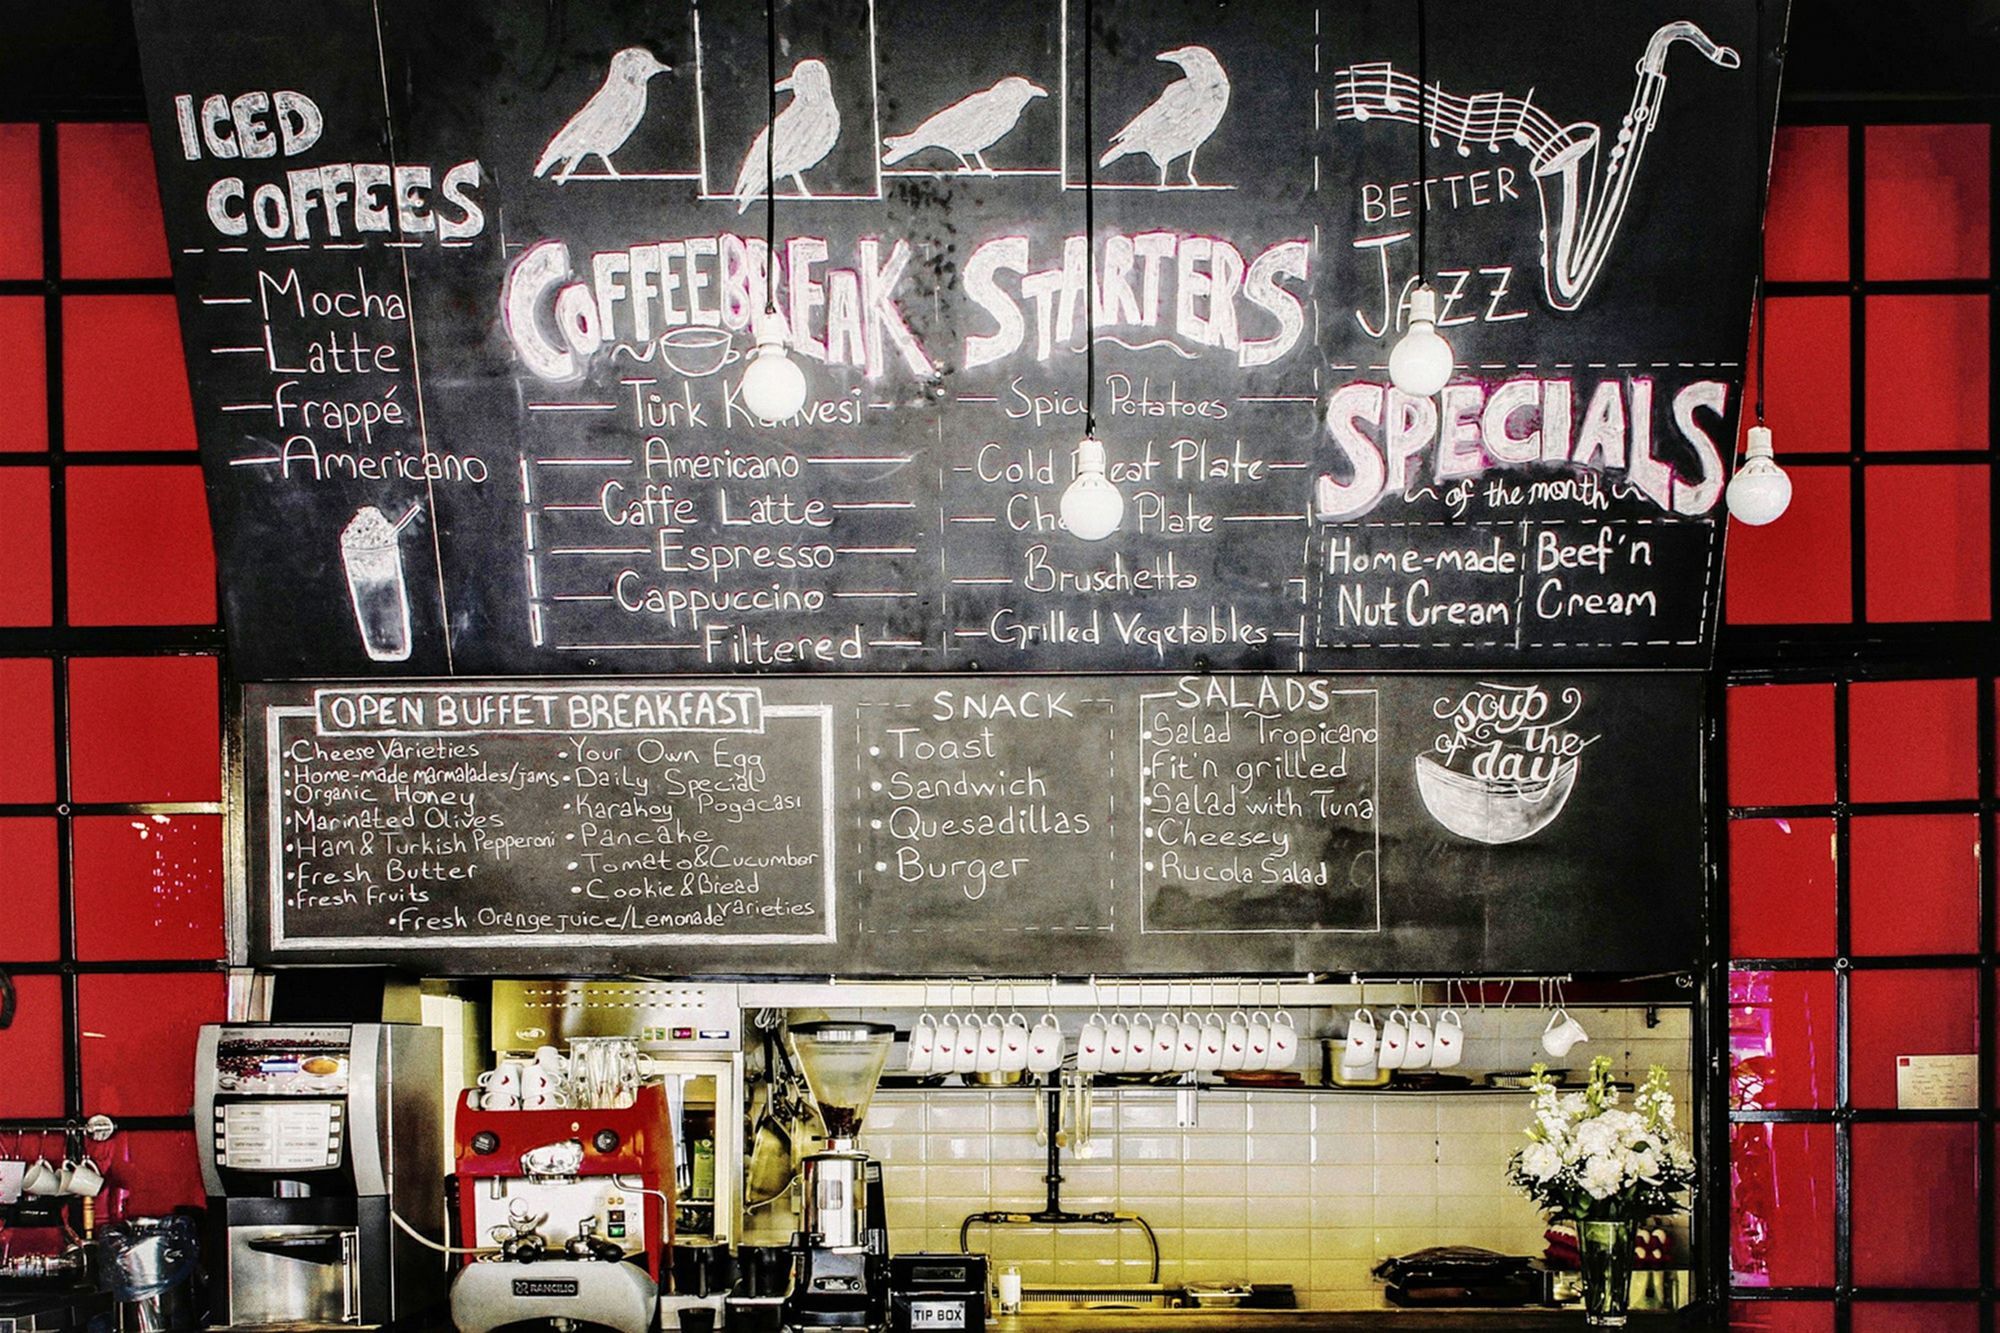 ICED
COFFEES
Mocha
Latte
Frappé
Americano
COFFEEBREAK
Türk
Americano
Caffe Latte
Espresso
Cappuccino
Filtered
STARTERS
Spicy Potatoes
Cold Plate
Plate
Bruschetta
Grilled Vegetables
BETTER
JAZZ
SPECIALS
of the month
Home-made
Nut Cream
Beef'n
Cream
OPEN BUFFET BREAKFAST
Cheese Varieties
Home-made marmalades/jams
Organic Honey
Marinated Olives
Ham & Turkish Pepperoni
Fresh Butter
Fresh Fruits
Your Own Egg
Daily Special
Karakoy Pogacasi
Pancake
Tomato & Cucumber
Cookie & Bread
Fresh Orange juice/Lemonade varieties
SNACK
Toast
Sandwich
Quesadillas
Burger
SALADS
Salad Tropicano
Fit'n grilled
Salad with Tuna
Cheesey
Rucola Salad
soup
of the
day
RANCILIO
TIP BOX